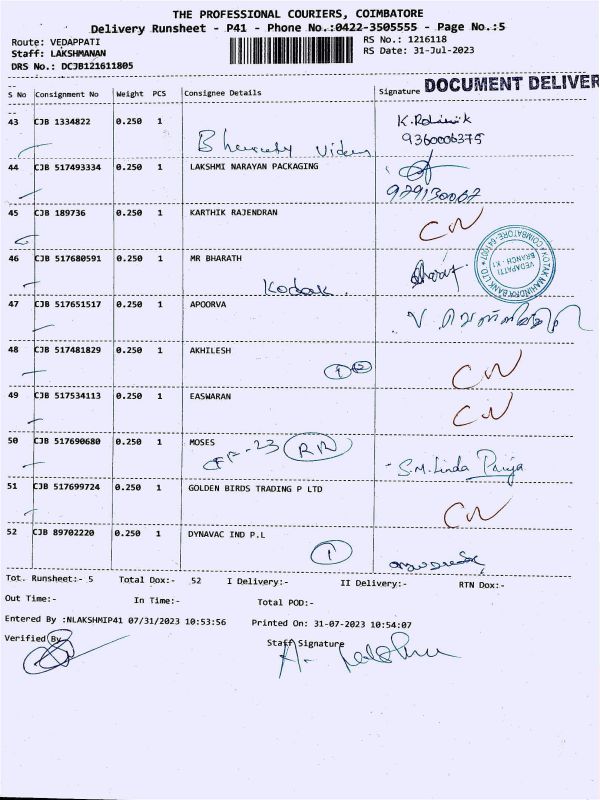 THE PROFESSIONAL COURIERS, COIMBATORE
Delivery Runsheet - P41 - Phone No.:0422-3505555 - Page No.:5
Route: VEDAPPATI
RS No.: 1216118
Staff: LAKSHMANAN
RS Date: 31-Jul-2023
DRS No.: DCJB121611805
DOCUMENT DELIVER
S No Consignment No Weight PCS Consignee Details Signature
43 CJB 1334822 0.250 1
K.
9360006375
44 CJB 517493334 0.250 1 LAKSHMI NARAYAN PACKAGING
45 CJB 189736 0.250 1 KARTHIK RAJENDRAN CN
46 CJB 517680591 0.250 1 MR BHARATH Bharat
Kodak
KOTAK MAHINDRA BANK LTD COIMBATORE-641007
VEDAPATTI
BRANCH - K1
47 CJB 517651517 0.250 1 APOORVA
48 CJB 517481829 0.250 1 AKHILESH CN
1 2
49 CJB 517534113 0.250 1 EASWARAN CN
50 CJB 517690680 0.250 1 MOSES
FF-23 RR S.M.Linda Priya
51 CJB 517699724 0.250 1 GOLDEN BIRDS TRADING P LTD CN
52 CJB 89702220 0.250 1 DYNAVAC IND P.L
1
Tot. Runsheet:- 5 Total Dox:- 52 I Delivery:- II Delivery:- RTN Dox:-
Out Time:- In Time:- Total POD:-
Entered By :NLAKSHMIP41 07/31/2023 10:53:56 Printed On: 31-07-2023 10:54:07
Verified By Staff Signature